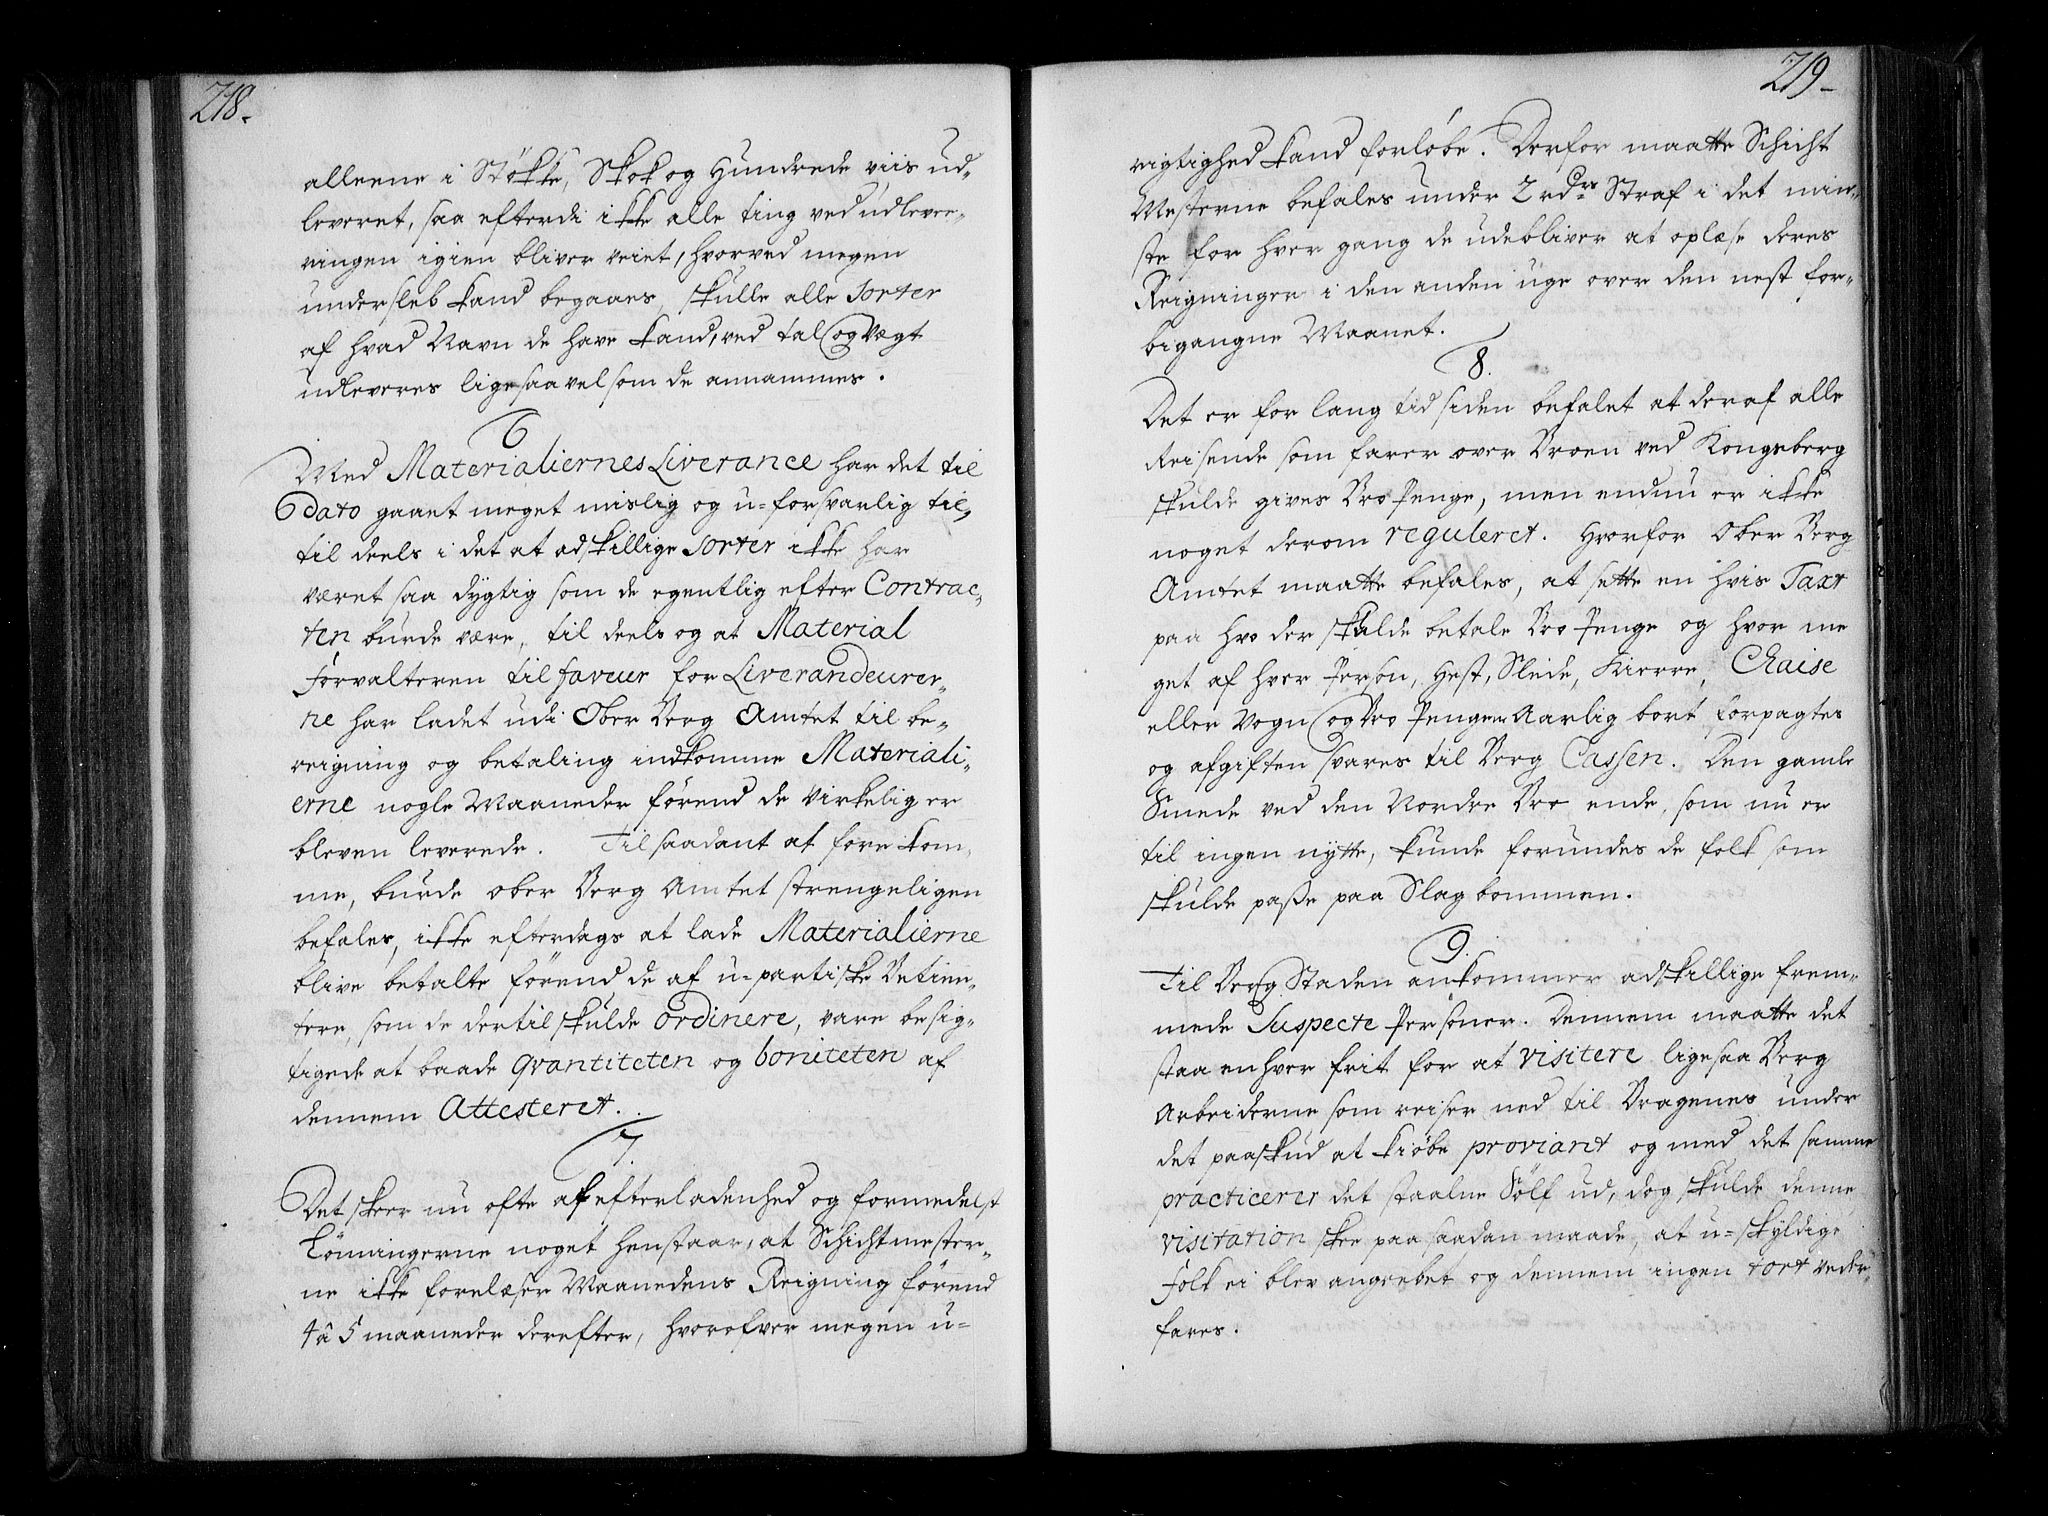 218.
alleene i Stökke, Skok og Hundrede viis ud-
leveret, saa efterdi ikke alle ting ved udlevee-
ringen igien bliver veiet, hvorved megen
undersleb kand begaaes, skulle alle Sorter
af hvad Navn de have kand, ved tal og vægt
udleveres ligesaavel som de annammes.
6
Med Materialiernes Liverance har det til
dato gaaet meget mislig og u-forsvarlig til,
til deels i det at adskillige Sorter ikke har
været saa dygtig som de egentlig efter Contrac-
ten burde være, til deels og at Material
Forvalteren til faveur for Liverandeurer-
ne har ladet udi Ober Berg Amtet til be-
reigning og betaling indkomme Materiali-
erne nogle Maaneder förend de virkelig er
bleven leverede. Til saadant at fore kom-
me, burde ober Berg Amtet strengeligen
befales, ikke efterdags at lade Materialierne
blive betalte förend de af u-partiske Betien-
tere, som de dertil skulde ordinere, vare besig-
tigede at baade qvantiteten og boniteten af
dennem Attesteret.
7.
Det skeer nu ofte af efterladenhed og formedelst
Lönningerne noget henstaar, at Schichtmester-
ne ikke forelæser Maanedens Reigning förend
4 â 5 maaneder derefter, hvorofver megen u-
219-
rigtighed kand forlöbe. Derfor maatte Schicht
Mesterne befales under 2 rdrs Straf i det min-
ste for hver gang de udebliver at oplæse deres
Reigninger i den anden uge over den nest for-
bigangne Maanet.
8.
Det er for lang tid siden befalet at deraf alle
Reisende som farer over Broen ved Kongsberg
skulde gives Bro Penge, men endnu er ikke
noget derom reguleret. Hvorfor Ober Berg
Amtet maatte befales, at sette en vis Taxt
paa hvo der skulde betale Bro Penge og hvor me
get af hver Person, Hest, Slede, Kierre, Chaise
eller Vogn og Bro Pengene Aarlig bort forpagtes
og afgiften svares til Berg Cassen. Den gamle
Smede ved den Nordre Bro ende, som nu er
til ingen nytte, kunde forundes de folk som
skulde passe paa Slag bommen.
9.
Til Berg Staden ankommer adskillige frem-
mede Suspecte Personer. Dennem maatte det
staa enhver frit for at visitere ligesaa Berg
Arbeiderne som reiser ned til Bragenes under
det paaskud at kiöbe proviant og med det samme
practicerer det staalne Sölf ud, dog skulde denne
visitation skee paa saadan maade, at u-skyldige
folk ei blev angrebet og dennem ingen tort veder-
fares.